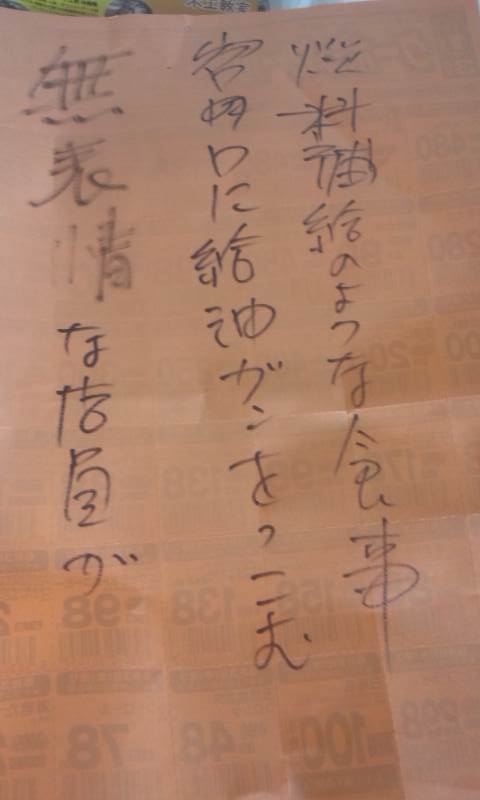 木工教室
燃料補給のような食事
客の口に給油ガンをつこむ
無表情な店員が